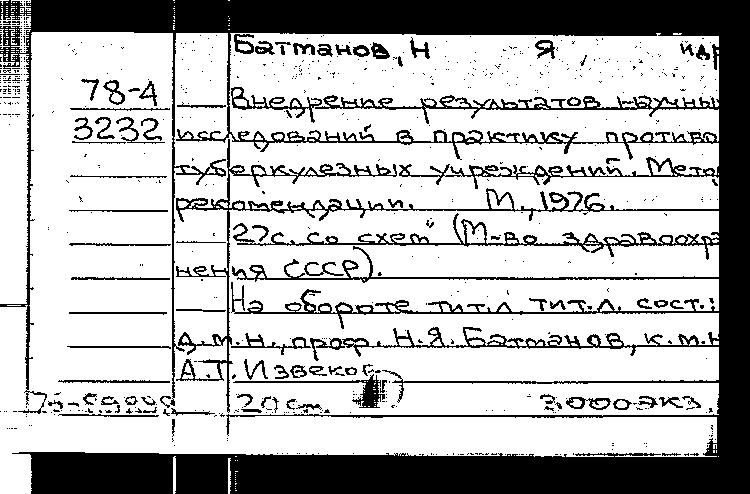 Батманов, Н Я и др
78-4 Внедрение результатов научны
3232 исследований в практику противо
туберкулезных учреждений. Мето
рекомендации. М., 1976.
27с. со схем" (М-во здравоохра
нения СССР).
На обороте тит.л. тит.л. сост.:
д.м.н., проф. Н.Я. Батманов, к.м.н
А.Т. Извеков
20 см. 3000 экз.